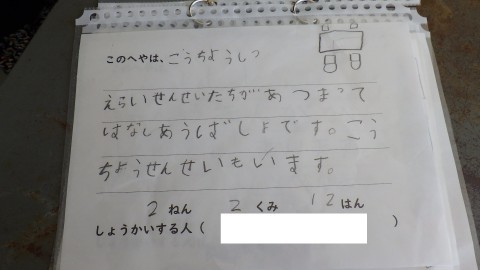 このへやは、ごうちようしつ
えらいせんせいたちがあつまって
はなしあうばしょです。こう
ちようせんせいもいます。
2ねん 2くみ 12はん
しょうかいする人( )